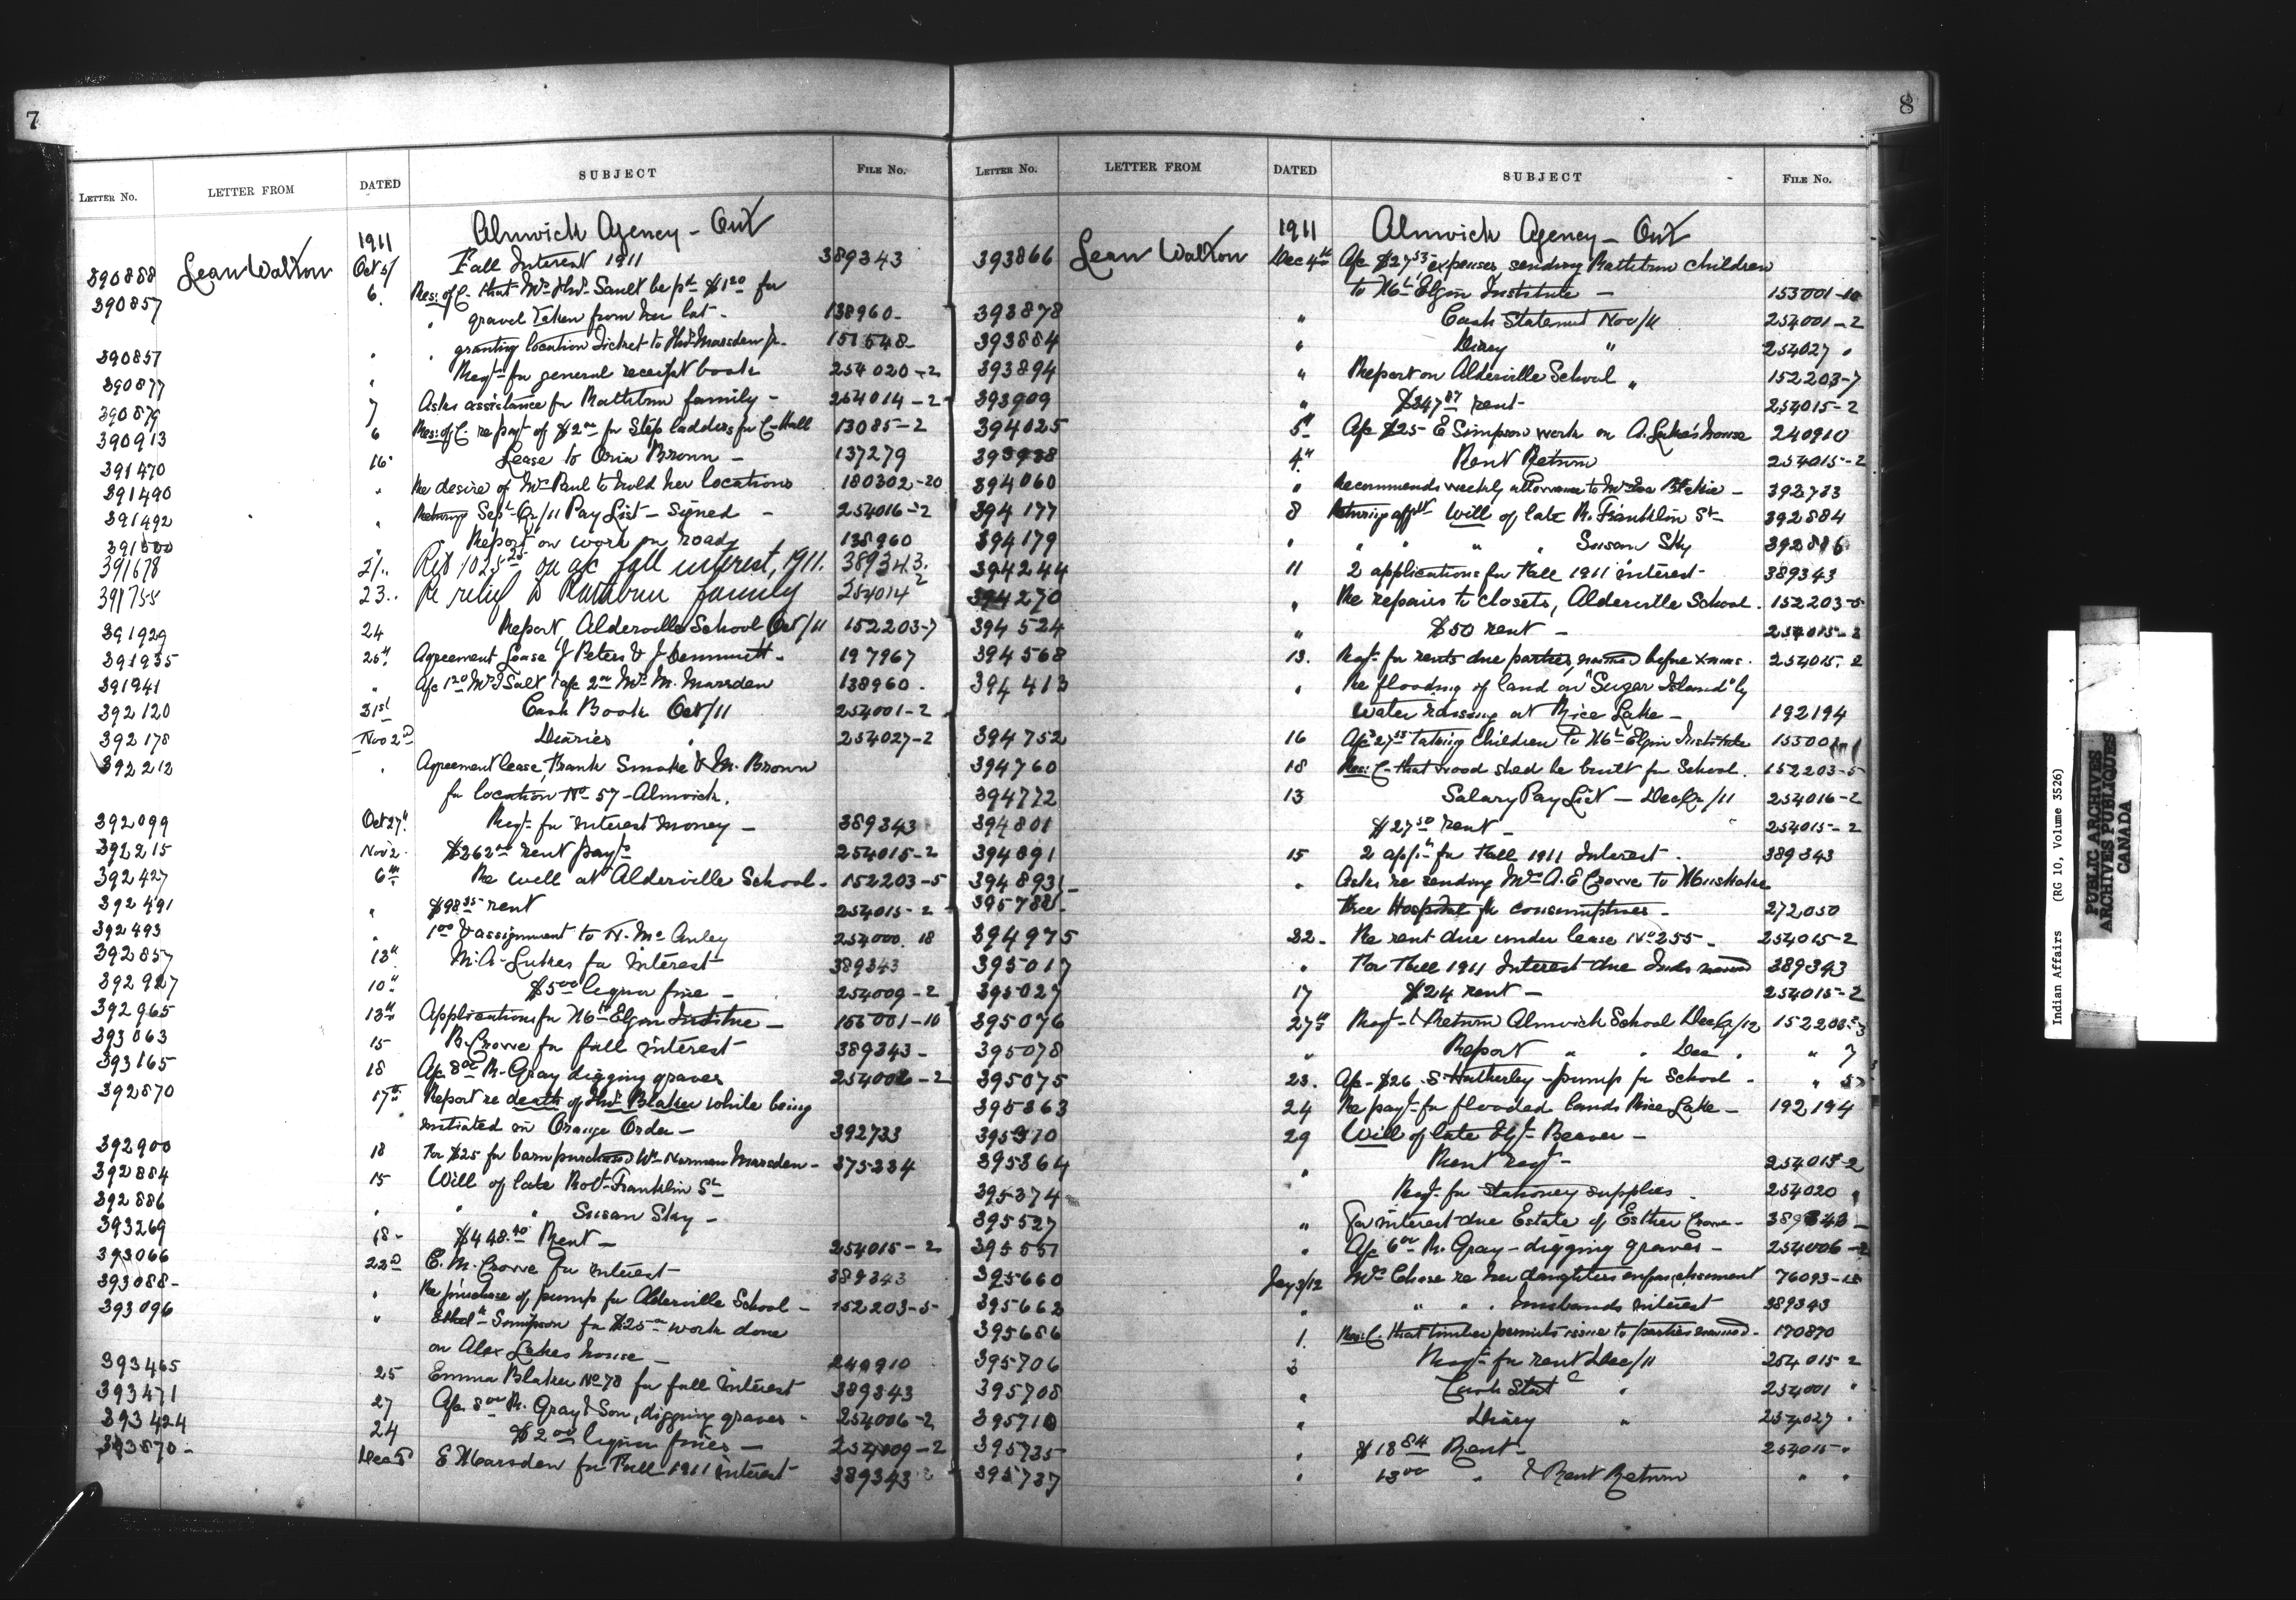 7
LETTER NO. LETTER FROM DATED SUBJECT FILE NO.
Alnwick Agency - Ont
1911
390888 Lean Walton Oct 5/ Fall Interest 1911 389343
390857 6. Res: of C. that Mrs Thos. Sault be pd $1.20 for
" gravel taken from her lot - 138960-
390851 " " granting location ticket to Thos. Marsden Jr. 151548-
390877 " Reqt for general receipt book 254020-2
390879 7 Asks assistance for Rathbun family - 254014-2
390913 6 Res: of C re payt of $2.00 for Step ladders for C-Hall 13085-2
391470 16 Lease to Oria Brown - 137279
391490 " Re desire of Mrs Paul to hold her locations 180302-20
391492 " Returning Sept Qr/11 Pay List - signed - 254016-2
391500 " Report on work on roads 138960
391678 21.. Ret 1025.25 on a/c fall interest, 1911. 389343.
391755 23.. Re relief to Rathbun family 254014-2
391929 24 Report Alderville School Oct/11 152203-7
391935 25th Agreement Lease J Peters & J Bennett - 197967
391941 " A/c 1.20 Mrs T Salt & a/c 2.00 Mrs M. Marsden 138960.
392120 31st Cash Book Oct/11 254001-2
392178 Nov 2nd Diaries " 254027-2
392212 " Agreement lease, Frank Smoke & M. Brown
for location No 57 - Alnwick.
392099 Oct 27th Reqt for interest money - 389343
392215 Nov 2. $262.00 rent payts 254015-2
392427 6th Re well at Alderville School. 152203-5
392491 " $98.35 rent 254015-2
392493 " 1.00 & assignment to N. McAuley 254000.18
392857 13th M. A. Lukes for interest 389343
392927 10th $5.00 liquor fine - 254009-2
392965 13th Application for Mt Elgin Institue - 155001-10
393063 15 B. Crowe for fall interest 389343-
393165 18 A/c 8.00 R. Gray digging graves 254006-2
392870 17th Report re death of Thos. Blaker while being
initiated in Orange Order - 392733
392900 18 For $25 for barn purchased Wm Norman Marsden - 375234
392884 15 Will of late Robt Franklin Sr
392886 " " " Susan Sky -
393269 18- $448.40 Rent - 254015-2
393066 22nd E. M. Crowe for interest 389343
393088- " Re purchase of pump for Alderville School - 152203-5-
393096 " Simpson for $25.00 work done
on Alex Lukes house - 240910
393465 25 Emma Blaker No 78 for fall interest 389343
393471 27 A/c. 8.00 R. Gray & Son, digging graves - 254006-2
393424 24 $2.00 liquor fines - 254009-2
393570- Dec 5 E Marsden for Fall 1911 interest 389343
8
LETTER NO. LETTER FROM DATED SUBJECT FILE NO.
1911 Alnwick Agency - Ont
393866 Lean Walton Dec 4th A/c $27.53, expenses sending Rathbun children
to Mt Elgin Institute - 155001-10
393878 " Cash Statement Nov/11 254001-2
393884 " Diary " 254027 "
393894 " Report on Alderville School " 152203-7
393909 " $347.87 rent - 254015-2
394025 5th A/c $25- E Simpson work on A. Luke's house 240910
393938 4th Rent Return 254015-2
394060 " Recommends weekly allowance to Mrs 392733
394177 8 Returning affdt Will of late R. Franklin Sr - 392884
394179 " " " " " Susan Sky 392886
394244 11 2 applications for Fall 1911 interest - 389343
394270 " Re repairs to closets, Alderville School. 152203-5
394524 " $50 rent - 254015-2
394568 13. Reqt for rents due parties, named before Xmas. 254015-2
394413 " Re flooding of land on "Sugar Island" by
water raising at Rice Lake - 192194
394752 16 A/c 27.53 taking children to Mt Elgin Institute 155001
394760 18 Res: C. that wood shed be built for School. 152203-5
394772 13 Salary Pay List - Dec Qr/11 254016-2
394801 $27.50 rent - 254015-2
394891 15 2 appns for Fall 1911 Interest. 389343
394893 " Asks re sending Mrs A. E Crowe to Muskoka
395788 Free Hospital for consumptives - 272050
394975 22. Re rent due under lease No 255 - 254015-2
395017 " For Fall 1911 Interest due Inds named 389343
395027 17 $24 rent - 254015-2
395076 27th Reqt & Return Alnwick School Dec Qr/12 152203-3
395078 " Report " " Dec. " 7
395075 23. A/c - $26 S. Hatherley - pump for School - " 5
395363 24 Re payt for flooded lands Rice Lake - 192194
395370 29 Will of late Beaver -
395364 " Rent reqt - 254015-2
395374 Reqt for stationery supplies. 254020 "
395527 " For interest due Estate of Esther Crowe - 389343-
395551 " A/c 6.00 R. Gray - digging graves - 254006-2
395660 Jay 3/12 Mrs Chase re her daughters enfranchisement 76093-18
395662 " " " husbands interest 389343
395686 1. Res: C. that timber permits issue to parties named. 170870
395706 3 Reqt for rent Dec/11 254015-2
395708 " Cash Stat " 254001 "
395710 " Diary " 254027 "
395735 " $18.84 Rent - 254015- "
395737 " 13.00 " & Rent Return " "
Indian Affairs (RG 10, Volume 3526)
PUBLIC ARCHIVES
ARCHIVES PUBLIQUES
CANADA